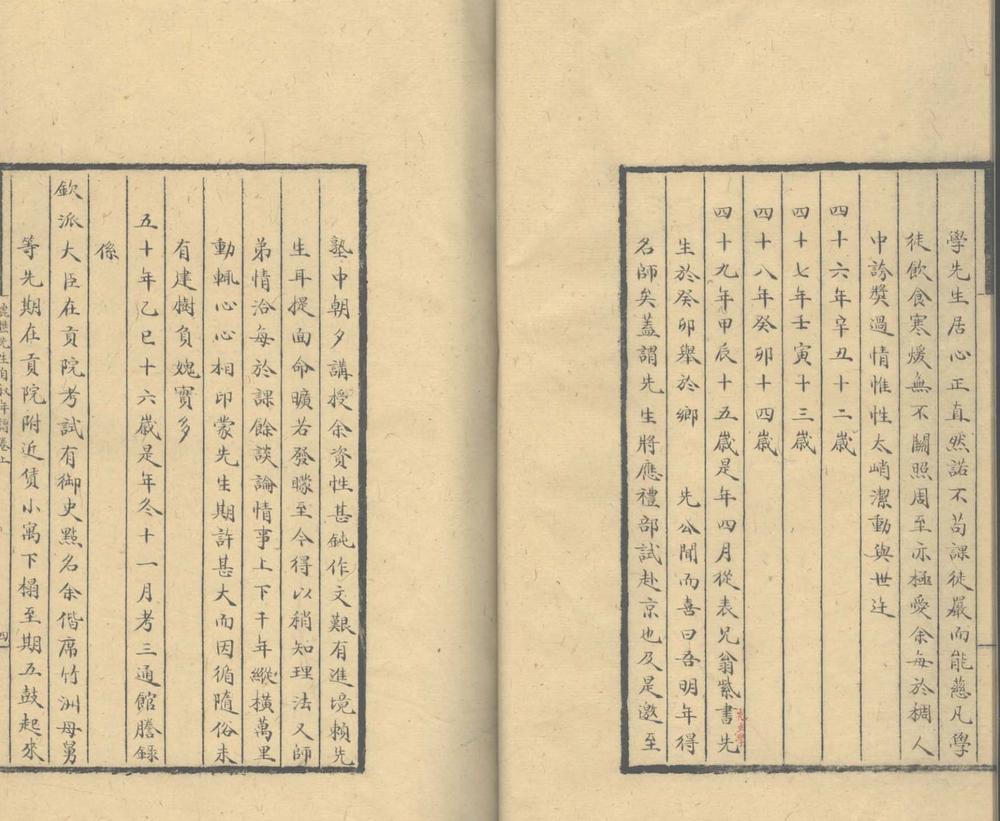 學先生居心正直然諾不苟課徒嚴而能慈凡學
徒飲食寒煖無不關照周至亦極愛余每於稠人
中誇獎過情惟性太峭潔動與世迕
四十六年辛丑十二歲
四十七年壬寅十三歲
四十八年癸卯十四歲
四十九年甲辰十五歲是年四月從表兄翁紫書先
生於癸卯舉於鄉 先公聞而喜曰吾明年得
名師矣蓋謂先生將應禮部試赴京也及是邀至
塾中朝夕講授余資性甚鈍作文艱有進境賴先
生耳提面命曠若發矇至今得以稍知理法又師
弟情洽每於課餘談論情事上下千年縱橫萬里
動輒心心相印蒙先生期許甚大而因循隨俗未
有建樹負媿實多
五十年乙巳十六歲是年冬十一月考三通館謄錄
係
欽派大臣在貢院考試有御史點名余偕席竹洲母舅
等先期在貢院附近賃小寓下榻至期五鼓起來
先生自敘年譜卷上
四